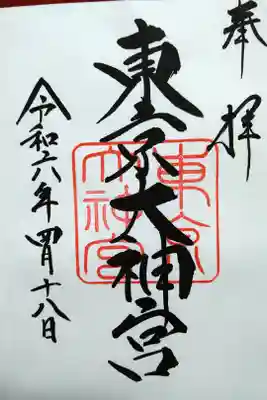 奉拝
東京大神宮
令和六年四月十八日
東京大神宮